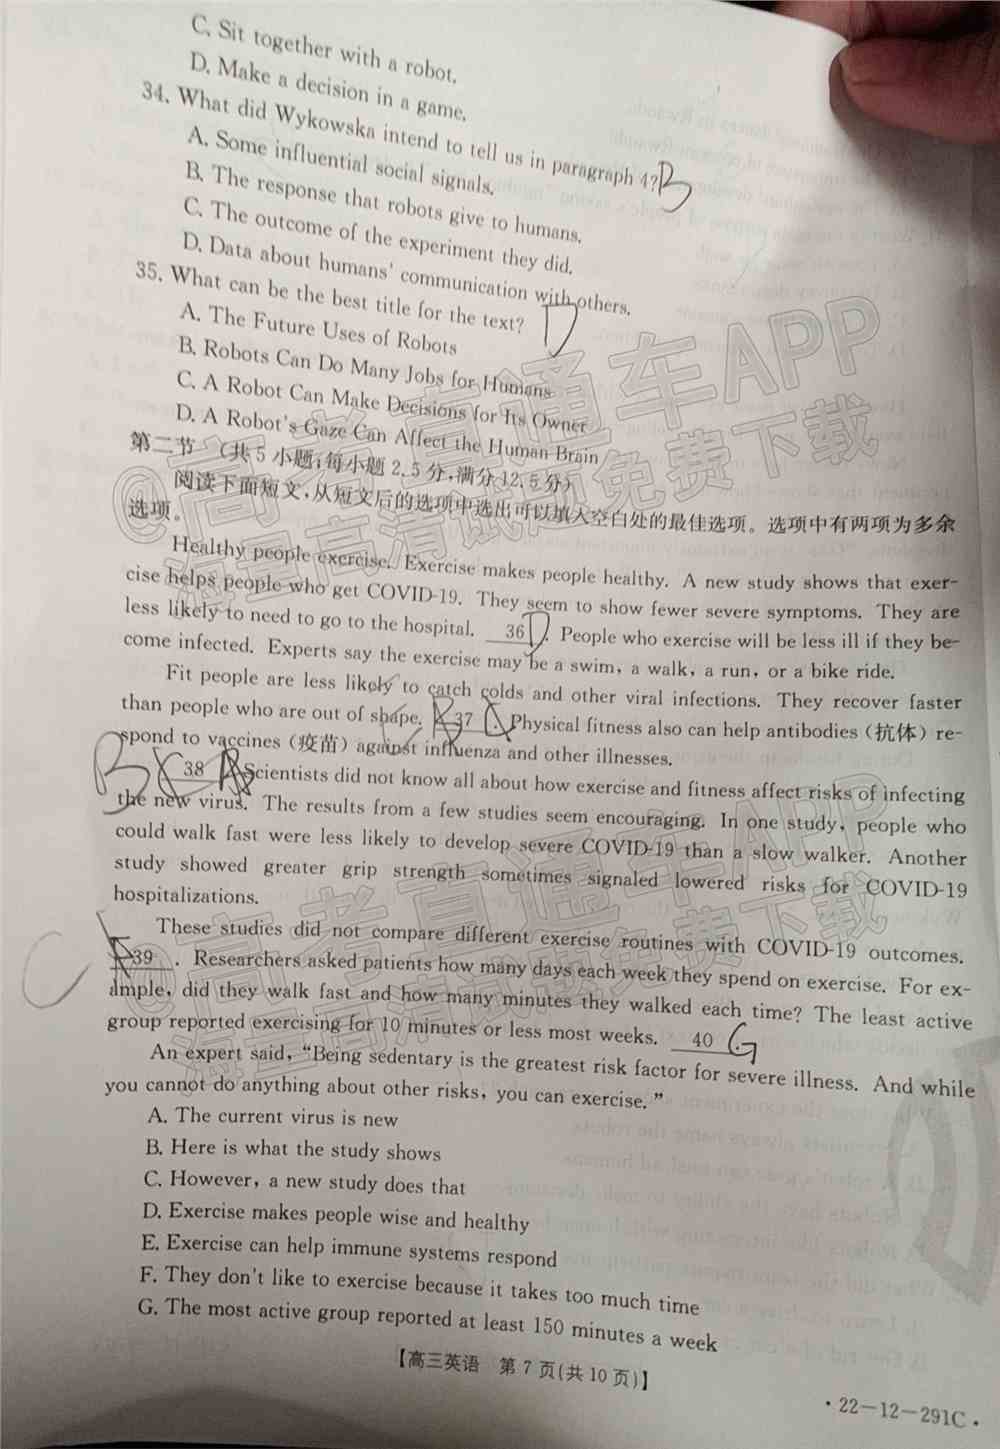 C. Sit together with a robot.
D. Make a decision in a game.
34. What did Wykowska intend to tell us in paragraph 4? B
A. Some influential social signals.
B. The response that robots give to humans.
C. The outcome of the experiment they did.
D. Data about humans' communication with others.
35. What can be the best title for the text? D
A. The Future Uses of Robots
B. Robots Can Do Many Jobs for Humans
C. A Robot Can Make Decisions for Its Owner
D. A Robot's Gaze Can Affect the Human Brain
第二节 (共5小题;每小题2.5分,满分12.5分)
阅读下面短文,从短文后的选项中选出可以填入空白处的最佳选项。选项中有两项为多余
选项。
Healthy people exercise. Exercise makes people healthy. A new study shows that exer-
cise helps people who get COVID-19. They seem to show fewer severe symptoms. They are
less likely to need to go to the hospital. 36 D. People who exercise will be less ill if they be-
come infected. Experts say the exercise may be a swim, a walk, a run, or a bike ride.
Fit people are less likely to catch colds and other viral infections. They recover faster
than people who are out of shape. 37. Physical fitness also can help antibodies (抗体) re-
spond to vaccines (疫苗) against influenza and other illnesses.
B 38 Scientists did not know all about how exercise and fitness affect risks of infecting
the new virus. The results from a few studies seem encouraging. In one study, people who
could walk fast were less likely to develop severe COVID-19 than a slow walker. Another
study showed greater grip strength sometimes signaled lowered risks for COVID-19
hospitalizations.
These studies did not compare different exercise routines with COVID-19 outcomes.
C 39. Researchers asked patients how many days each week they spend on exercise. For ex-
ample, did they walk fast and how many minutes they walked each time? The least active
group reported exercising for 10 minutes or less most weeks. 40 G
An expert said, "Being sedentary is the greatest risk factor for severe illness. And while
you cannot do anything about other risks, you can exercise."
A. The current virus is new
B. Here is what the study shows
C. However, a new study does that
D. Exercise makes people wise and healthy
E. Exercise can help immune systems respond
F. They don't like to exercise because it takes too much time
G. The most active group reported at least 150 minutes a week
【高三英语 第7页(共10页)】
·22-12-291C·
@高考直通车APP
海量高清试题免费下载
@高考直通车APP
海量高清试题免费下载